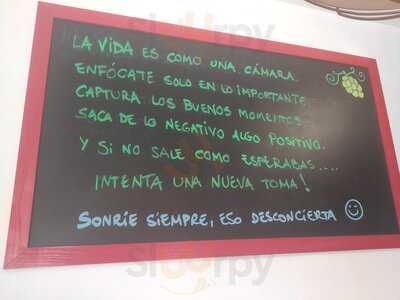 LA VIDA ES COMO UNA CÁMARA.
ENFÓCATE SOLO EN LO IMPORTANTE
CAPTURA LOS BUENOS MOMENTOS
SACA DE LO NEGATIVO ALGO POSITIVO.
Y SI NO SALE COMO ESPERABAS....
INTENTA UNA NUEVA TOMA!
SONRIE SIEMPRE, ESO DESCONCIERTA
sluurpy
sluurpy